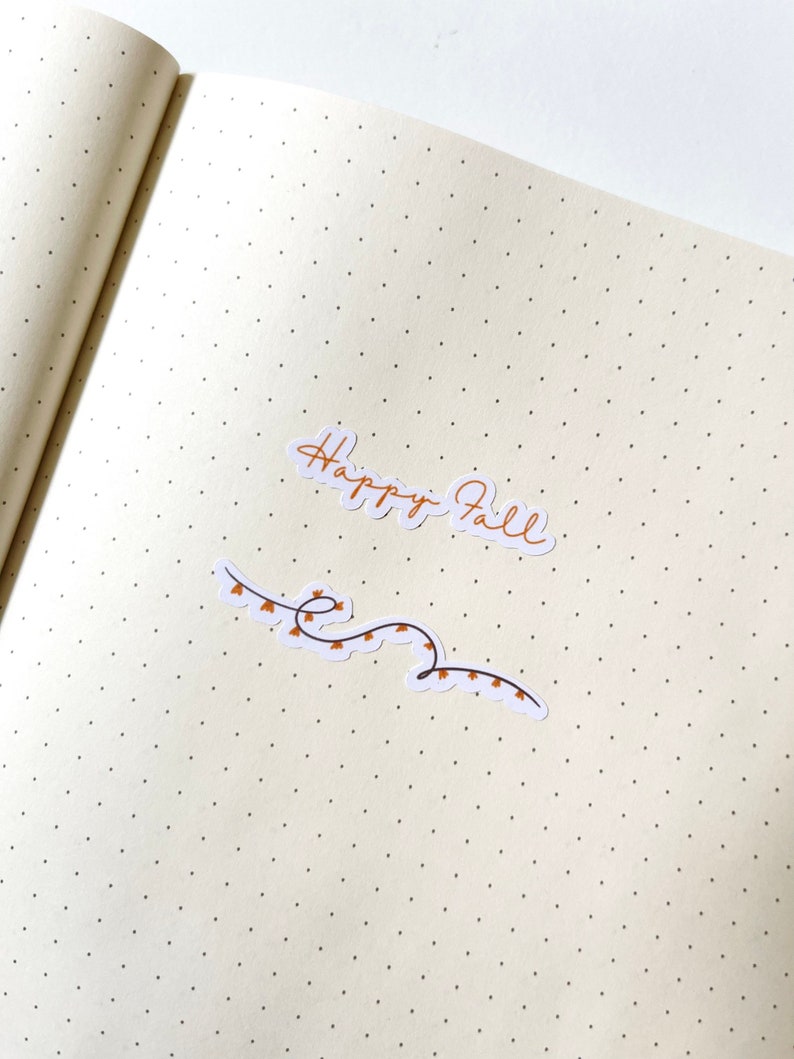 Happy Fall